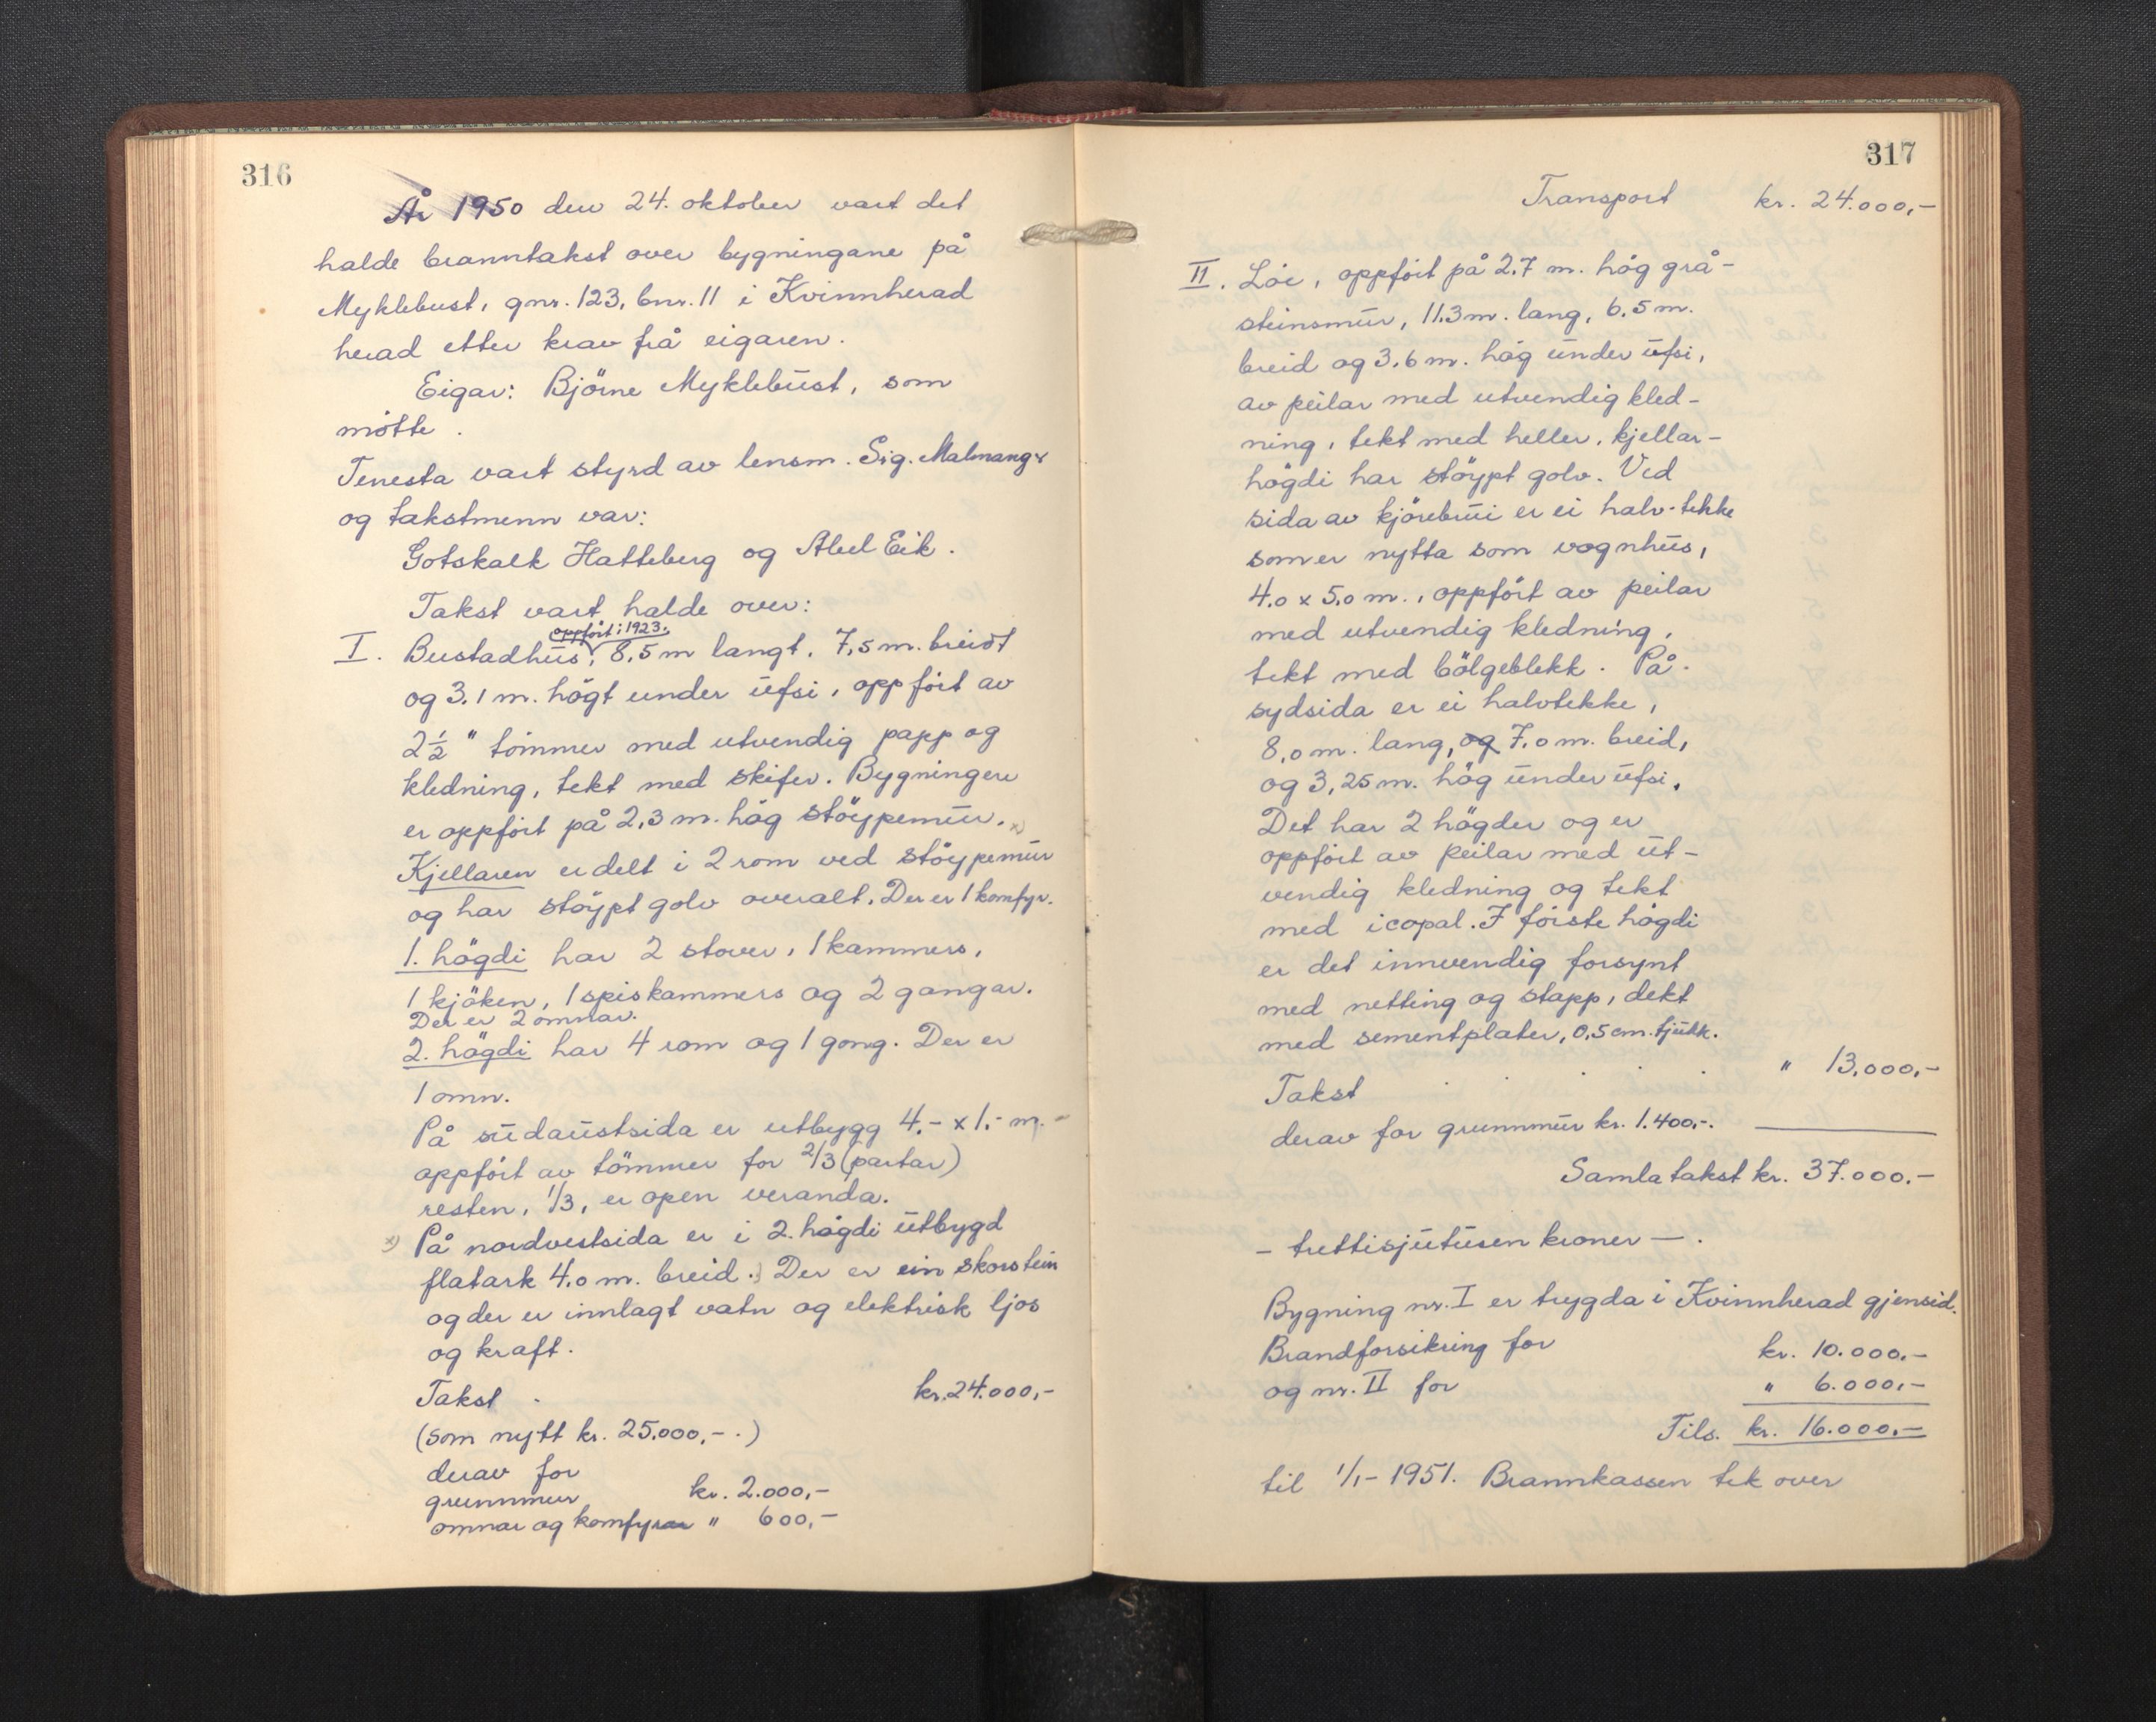 316
År 1950 den 24. oktober vart det
halde branntakst over bygningane på
Myklebust, gnr. 123, bnr. 11 i Kvinnherad
herad etter krav frå eigaren.
Eigar: Björne Myklebust, som
møtte.
Tenesta vart styrd av lensm. Sig. Malmanger
og takstmenn var:
Gotskalk Hatteberg og Abel Eik.
Takst vart halde over:
oppført i 1923.
I. Bustadhus, 8,5 m langt, 7,5 m. breidt
og 3,1 m. högt under ufsi, oppført av
2 1/2 " tömmer med utvendig papp og
kledning, tekt med skifer. Bygningen
er oppført på 2,3 m. håg støypemur. x)
Kjellaren er delt i 2 rom ved støypemur
og har støypt golv overalt. Der er 1 komfyr.
1. högdi har 2 stover, 1 kammers,
1 kjöken, 1 spiskammers og 2 gangar.
Der er 2 omnar.
2. högdi har 4 rom og 1 gong. Der er
1 omn.
På sudaustsida er utbygg 4,- x 1,- m.
oppført av tömmer for 2/3 (partar)
resten, 1/3, er open veranda.
x) På nordvestsida er i 2. högdi utbygd
flatark 4,0 m. breid. Der er ein skorstein
og der er innlagt vatn og elektrisk ljos
og kraft.
Takst . kr. 24.000,-
(som nytt kr. 25.000,-.)
derav for
grunnmur kr. 2.000,-
omnar og komfyrar " 600,-
317
Transport kr. 24.000,-
II. Löe, oppført på 2,7 m. hög grå-
steinsmur, 11,3 m. lang, 6,5 m.
breid og 3,6 m. hög under ufsi,
av peilar med utvendig kled-
ning, tekt med heller, kjellar-
högdi har støypt golv. Ved
sida av kjörebrui er ei halv-tekke
som er nytta som vognhus,
4,0 x 5,0 m., oppført av peilar
med utvendig kledning,
tekt med bölgeblekk. På
sydsida er ei halvtekke,
8,0 m. lang, og 7,0 m. breid,
og 3,25 m. hög under ufsi.
Det har 2 högder og er
oppført av peilar med ut-
vendig kledning og tekt
med icopal. I første högdi
er det innvendig forsynt
med netting og stapp, dekt
med sementplater, 0,5 cm. tjukk.
Takst . . . " 13,000,-
derav for grunnmur kr. 1.400,-.
Samla takst kr. 37.000.-
- trettisjutusen kroner -.
Bygning nr. I er trygda i Kvinnherad gjensid.
Brandforsikring for kr. 10.000.-
og nr. II for " 6.000,-
Tils. kr. 16.000.-
til 1/1- 1951. Brannkassen tek over